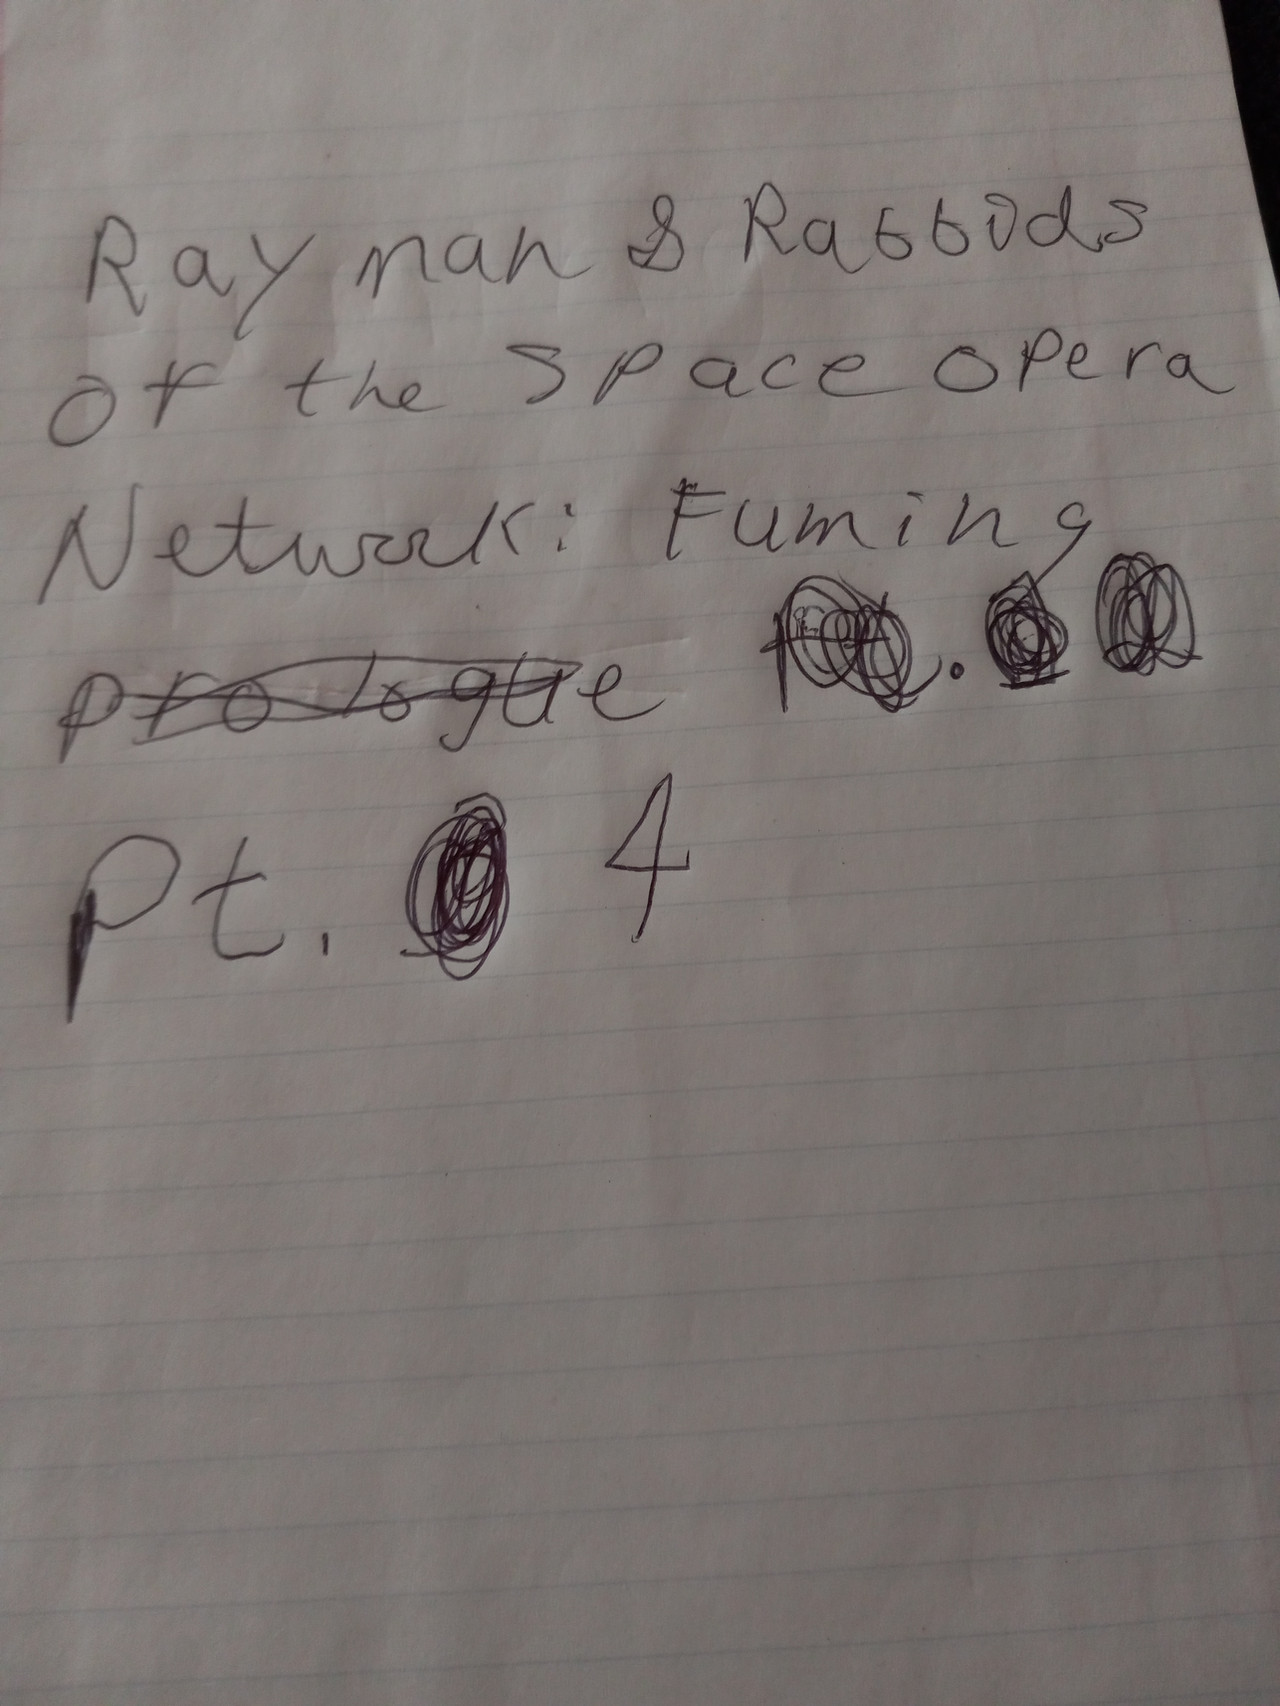 Rayman & Rabbids
of the Space Opera
Network: Fuming
prologue
Pt. 4